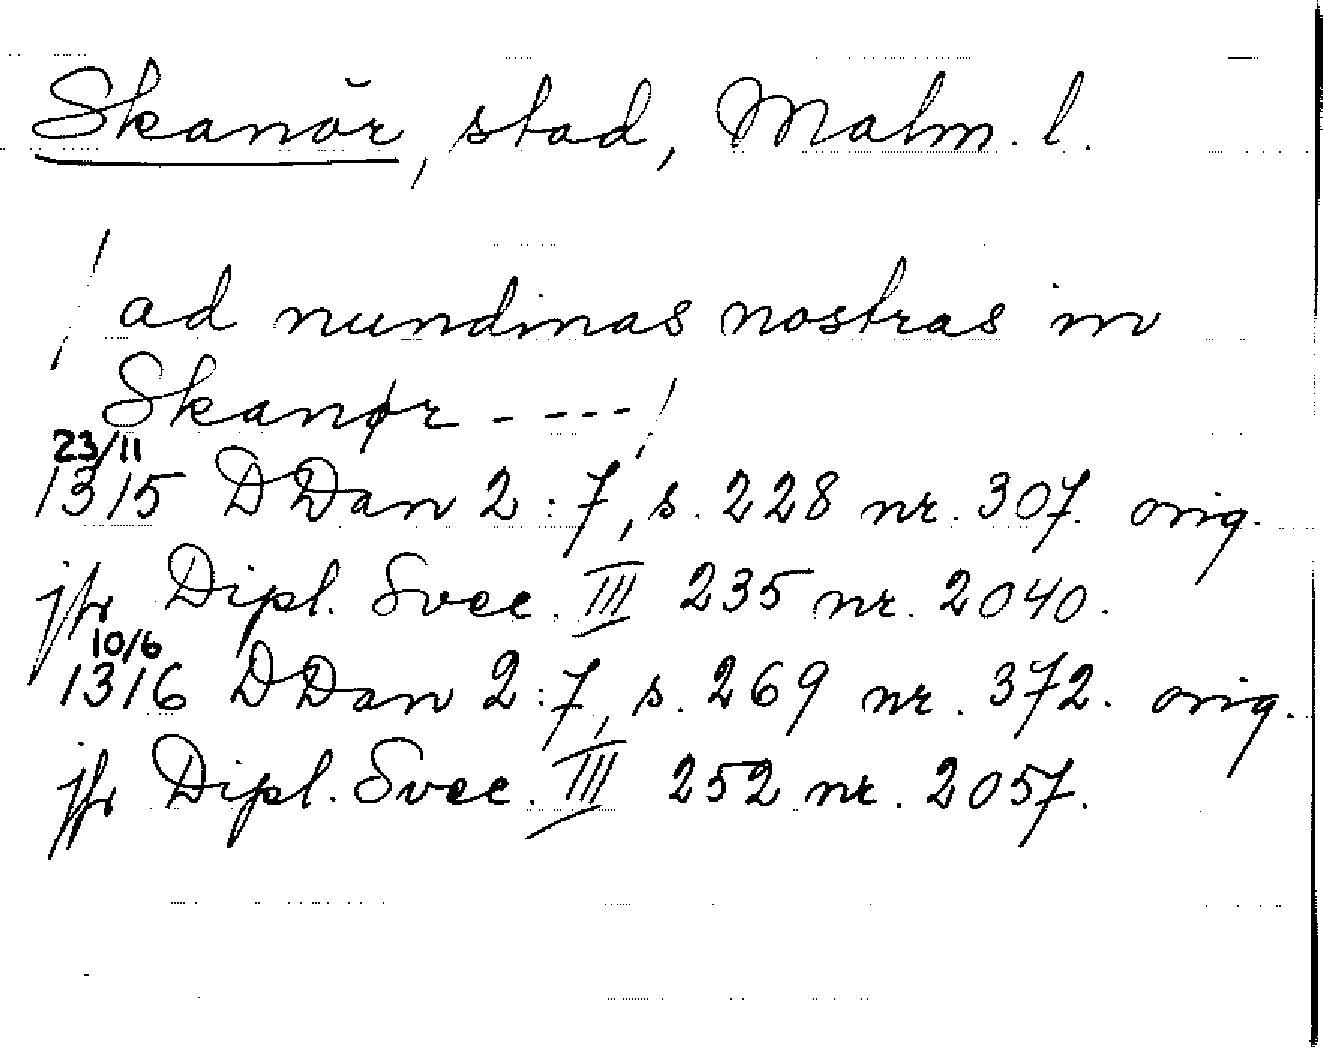 Skanör, stad, Malm. l.
/ad nundinas nostras in
Skanør - - - -/
23/11
1315 DDan 2:7, s. 228 nr. 307. orig.
jfr Dipl. Svec. III 235 nr. 2040.
10/6
1316 DDan 2:7, s. 269 nr. 372. orig.
jfr Dipl. Svec. III 252 nr. 2057.